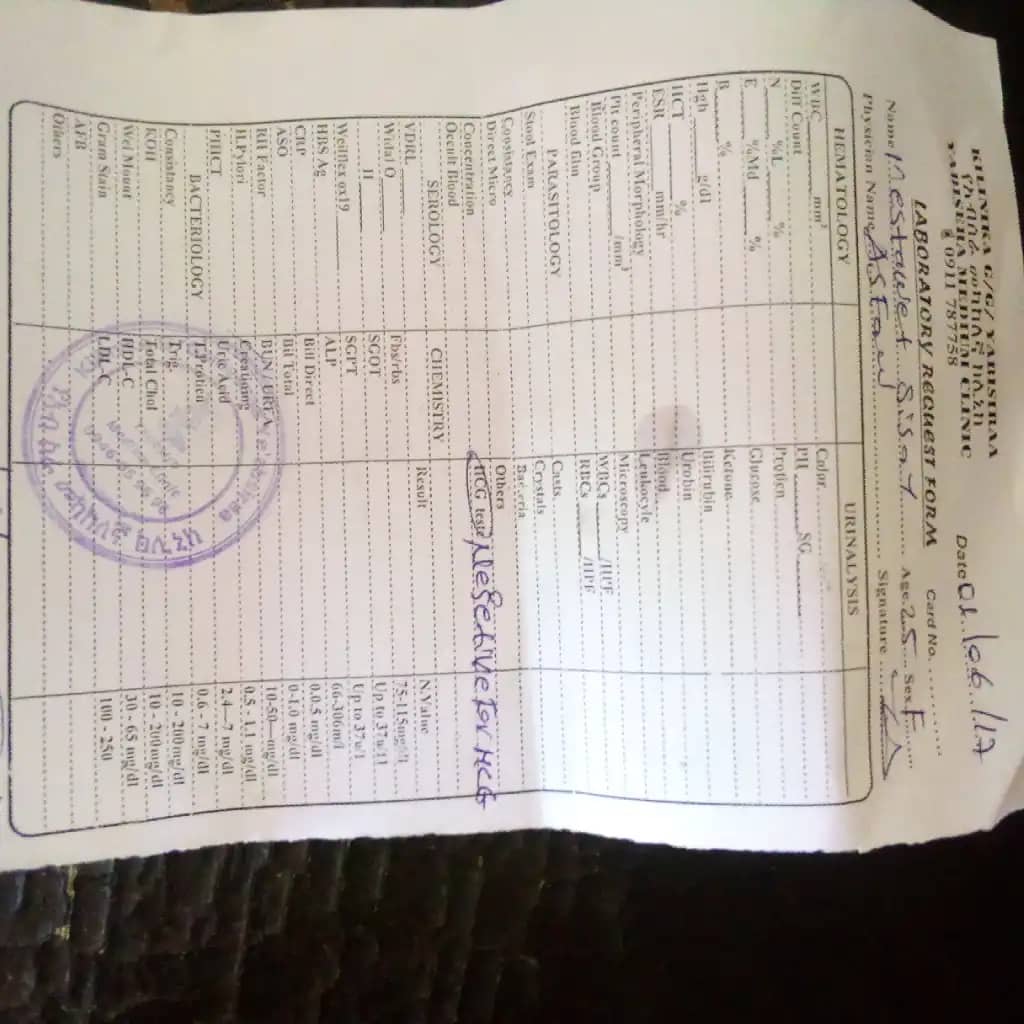 KILINIKA G/G/ YADISEHAA
ያዲስሃ መካከለኛ ክሊኒክ
YADISEHA MEDIUM CLINIC
0911 787758
Date 01/06/17
LABORATORY REQUEST FORM
Card No.
Name Sisay Age 25 Sex F
Physician Name Signature
HEMATOLOGY
WBC mm³
Diff Count
N %L %
E %Md %
B %
Hgh g/dl
HCT %
ESR mm/hr
Peripheral Morphology
Plt count /mm³
Blood Group
Blood film
PARASITOLOGY
Stool Exam
Consistency
Direct Micro
Concentration
Occult Blood
SEROLOGY
VDRL
Widal O
H
Weilflex ox19
HBS Ag
CRP
ASO
RH Factor
H.Pylori
PHCT
BACTERIOLOGY
Consistancy
KOH
Wel Mount
Gram Stain
AFB
Others
URINALYSIS
Color
PH SG
Protien
Glucose
Ketone
Bilirubin
Urobin
Blood
Leukocyle
Microscopy
WBCs /HPF
RBCs /HPF
Casts
Crystals
Bacteria
Others
HCG teste Negetive for HCG
CHEMISTRY Result N.Value
Fbs/rbs 75-115mg/1
SGOT Up to 37u/11
SGPT Up to 37u/1
ALP 66-306m/l
Bill Direct 0.0.5 mg/dl
Bil Total 0-1.0 mg/dl
BUN / UREA 10-50—mg/dl
Creatining 0.5 - 1.1 mg/dl
Uric Acid 2.4—7 mg/dl
T.Protien 0.6 - 7 mg/dl
Trig 10 - 200mg/dl
Total Chol 10 - 200mg/dl
HDL-C 30 - 65 mg/dl
LDL-C 100 - 250